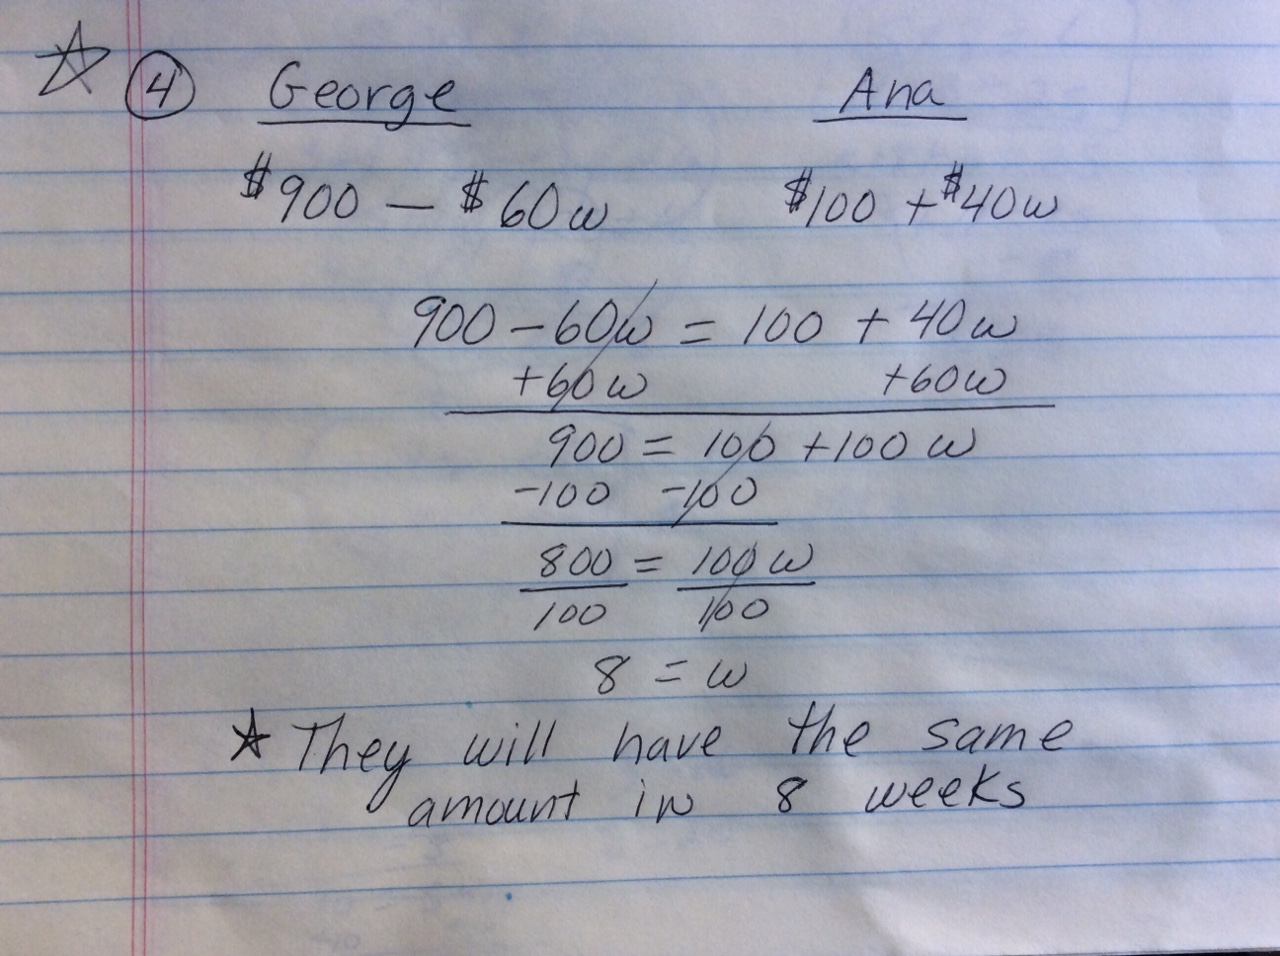 ☆ ④ George Ana
$900 - $60w $100 + $40w
900 - 60w = 100 + 40w
+60w +60w
900 = 100 + 100w
-100 -100
800 = 100w
100 100
8 = w
☆ They will have the same
amount in 8 weeks